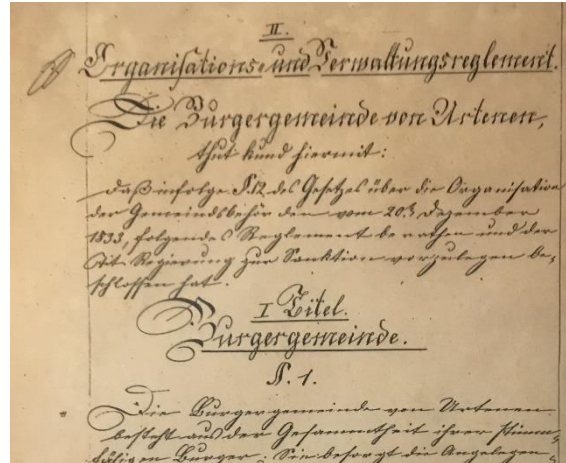 II.
Organisations- und Verwaltungsreglement.
Die Burgergemeinde von Urtenen,
thut kund hiermit:
Daß infolge §. 12 des Gesetzes über die Organisation
der Gemeindsbehörden vom 20. Dezember
1833, folgendes Reglement berathen und der
Tit. Regierung zur Sanktion vorzulegen be-
schlossen hat.
I Titel.
Burgergemeinde.
§. 1.
Die Burgergemeinde von Urtenen
besteht aus der Gesammtheit ihrer stimm-
fähigen Burger. Sie besorgt die Angelegen-